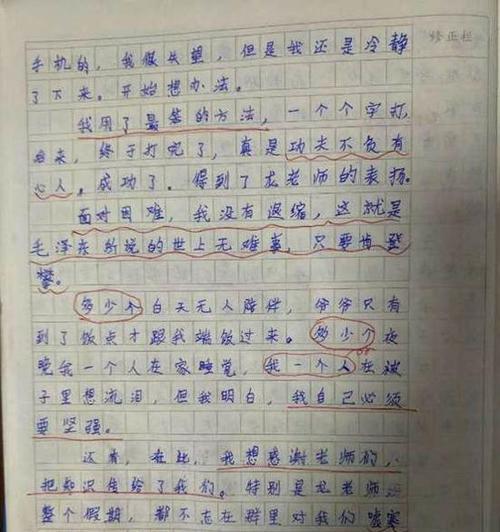 修正栏
手机的，我很失望，但是我还是冷静
了下来。开始想办法。
我用了最笨的方法，一个个字打
出来，终于打完了，真是功夫不负有
心人。成功了。得到了龙老师的表扬。
面对困难，我没有退缩，这就是
毛泽东所说的世上无难事，只要肯登
攀。
多少个白天无人陪伴，爷爷只有
到了饭点才跟我端饭过来。多少个夜
晚我一个人在家睡觉，我一个人在被
子里想流泪，但我明白，我自己必须
要坚强。
还有，在此，我想感谢老师们，
把知识传给了我们。特别是龙老师，
整个假期，都不忘在群里对我们